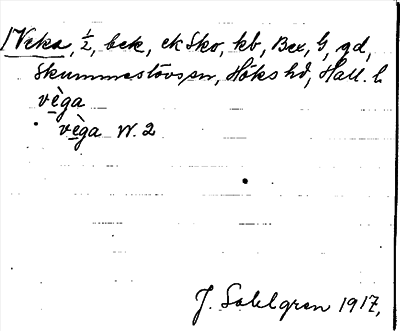 Veka, ½, bek, ek Sko, kb, Bex, G, gd,
Skummeslövs sn, Höks hd, Hall. l.
vèga
vèga W. 2
J. Sahlgren 1917.